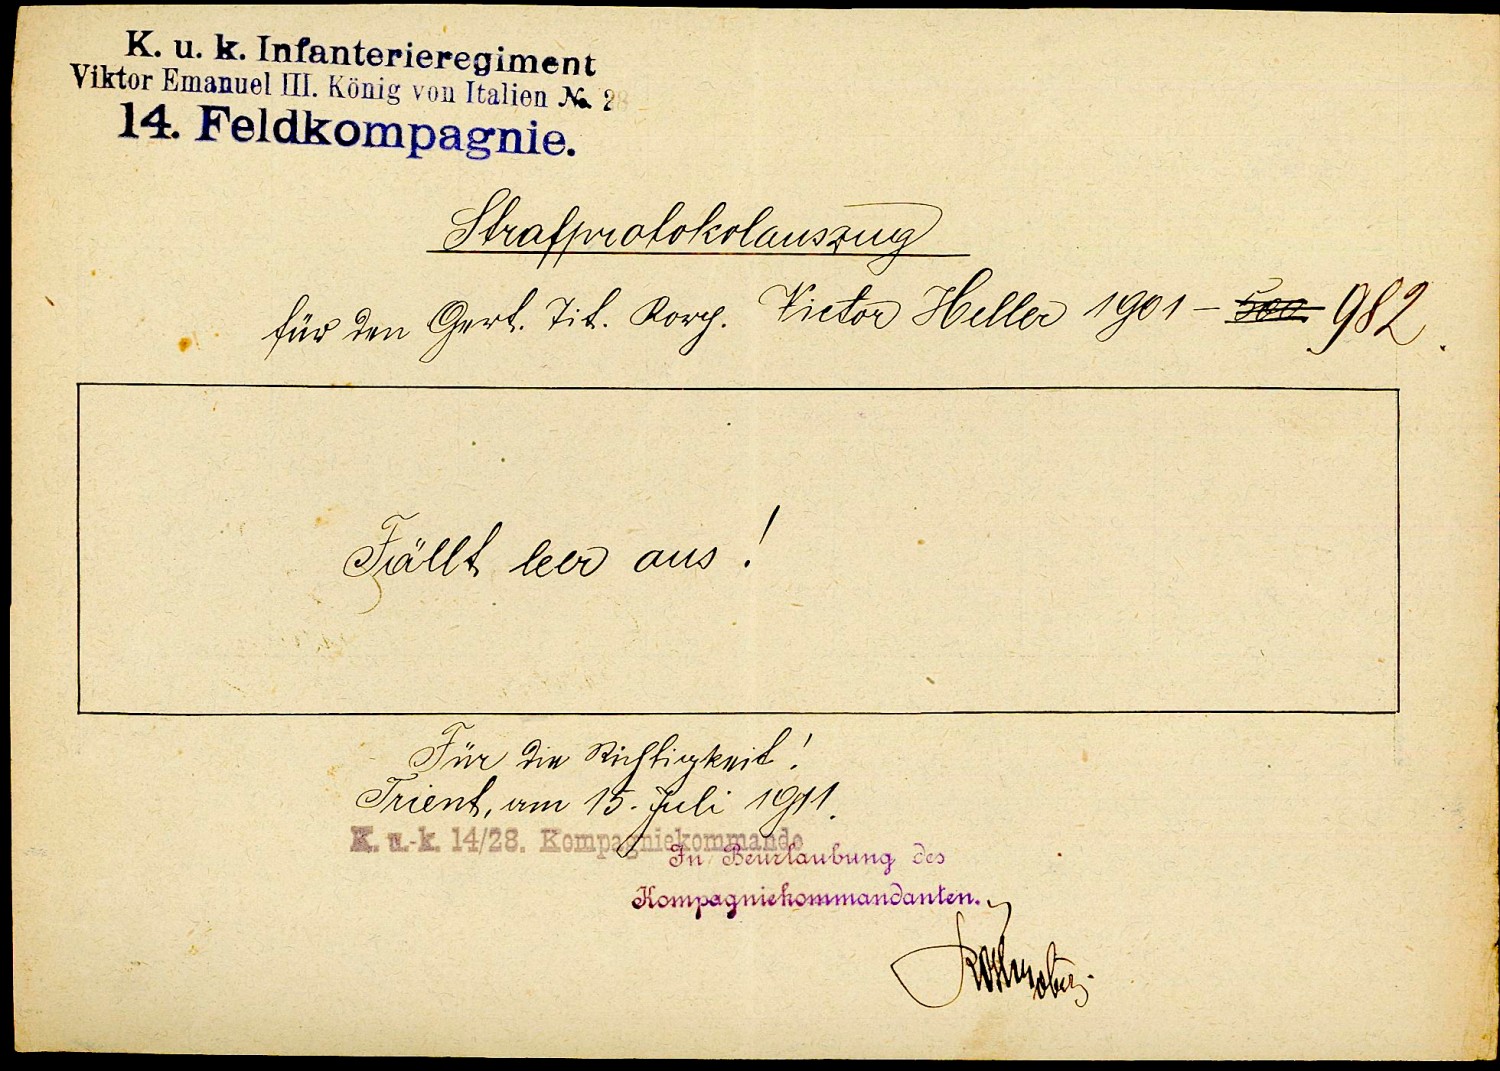 K. u. k. Infanterieregiment
Viktor Emanuel III. König von Italien No. 28
14. Feldkompagnie.
Strafprotokolauszug
für den Gert. Tit. Korp. Victor Heller 1901 – 500 982.
Fällt leer aus!
Für die Richtigkeit!
Trient, am 15. Juli 1911.
K. u. k. 14/28. Kompagniekommando
In Beurlaubung des
Kompagniekommandanten.